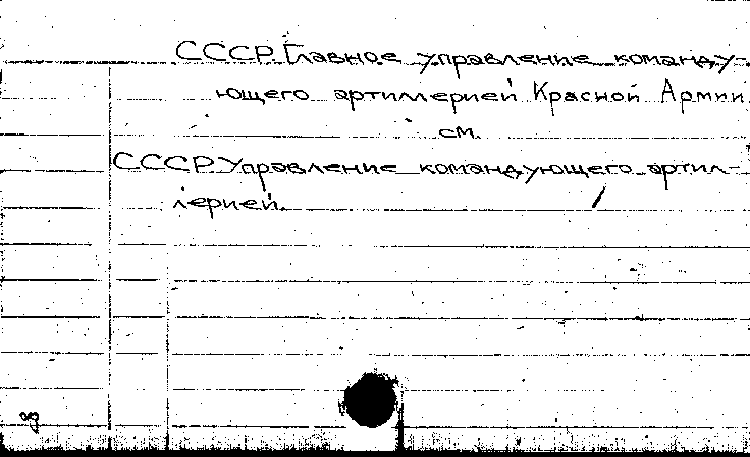 СССР. Главное управление команду-
ющего артиллерией Красной Армии
см.
СССР. Управление командующего артил-
лерией.